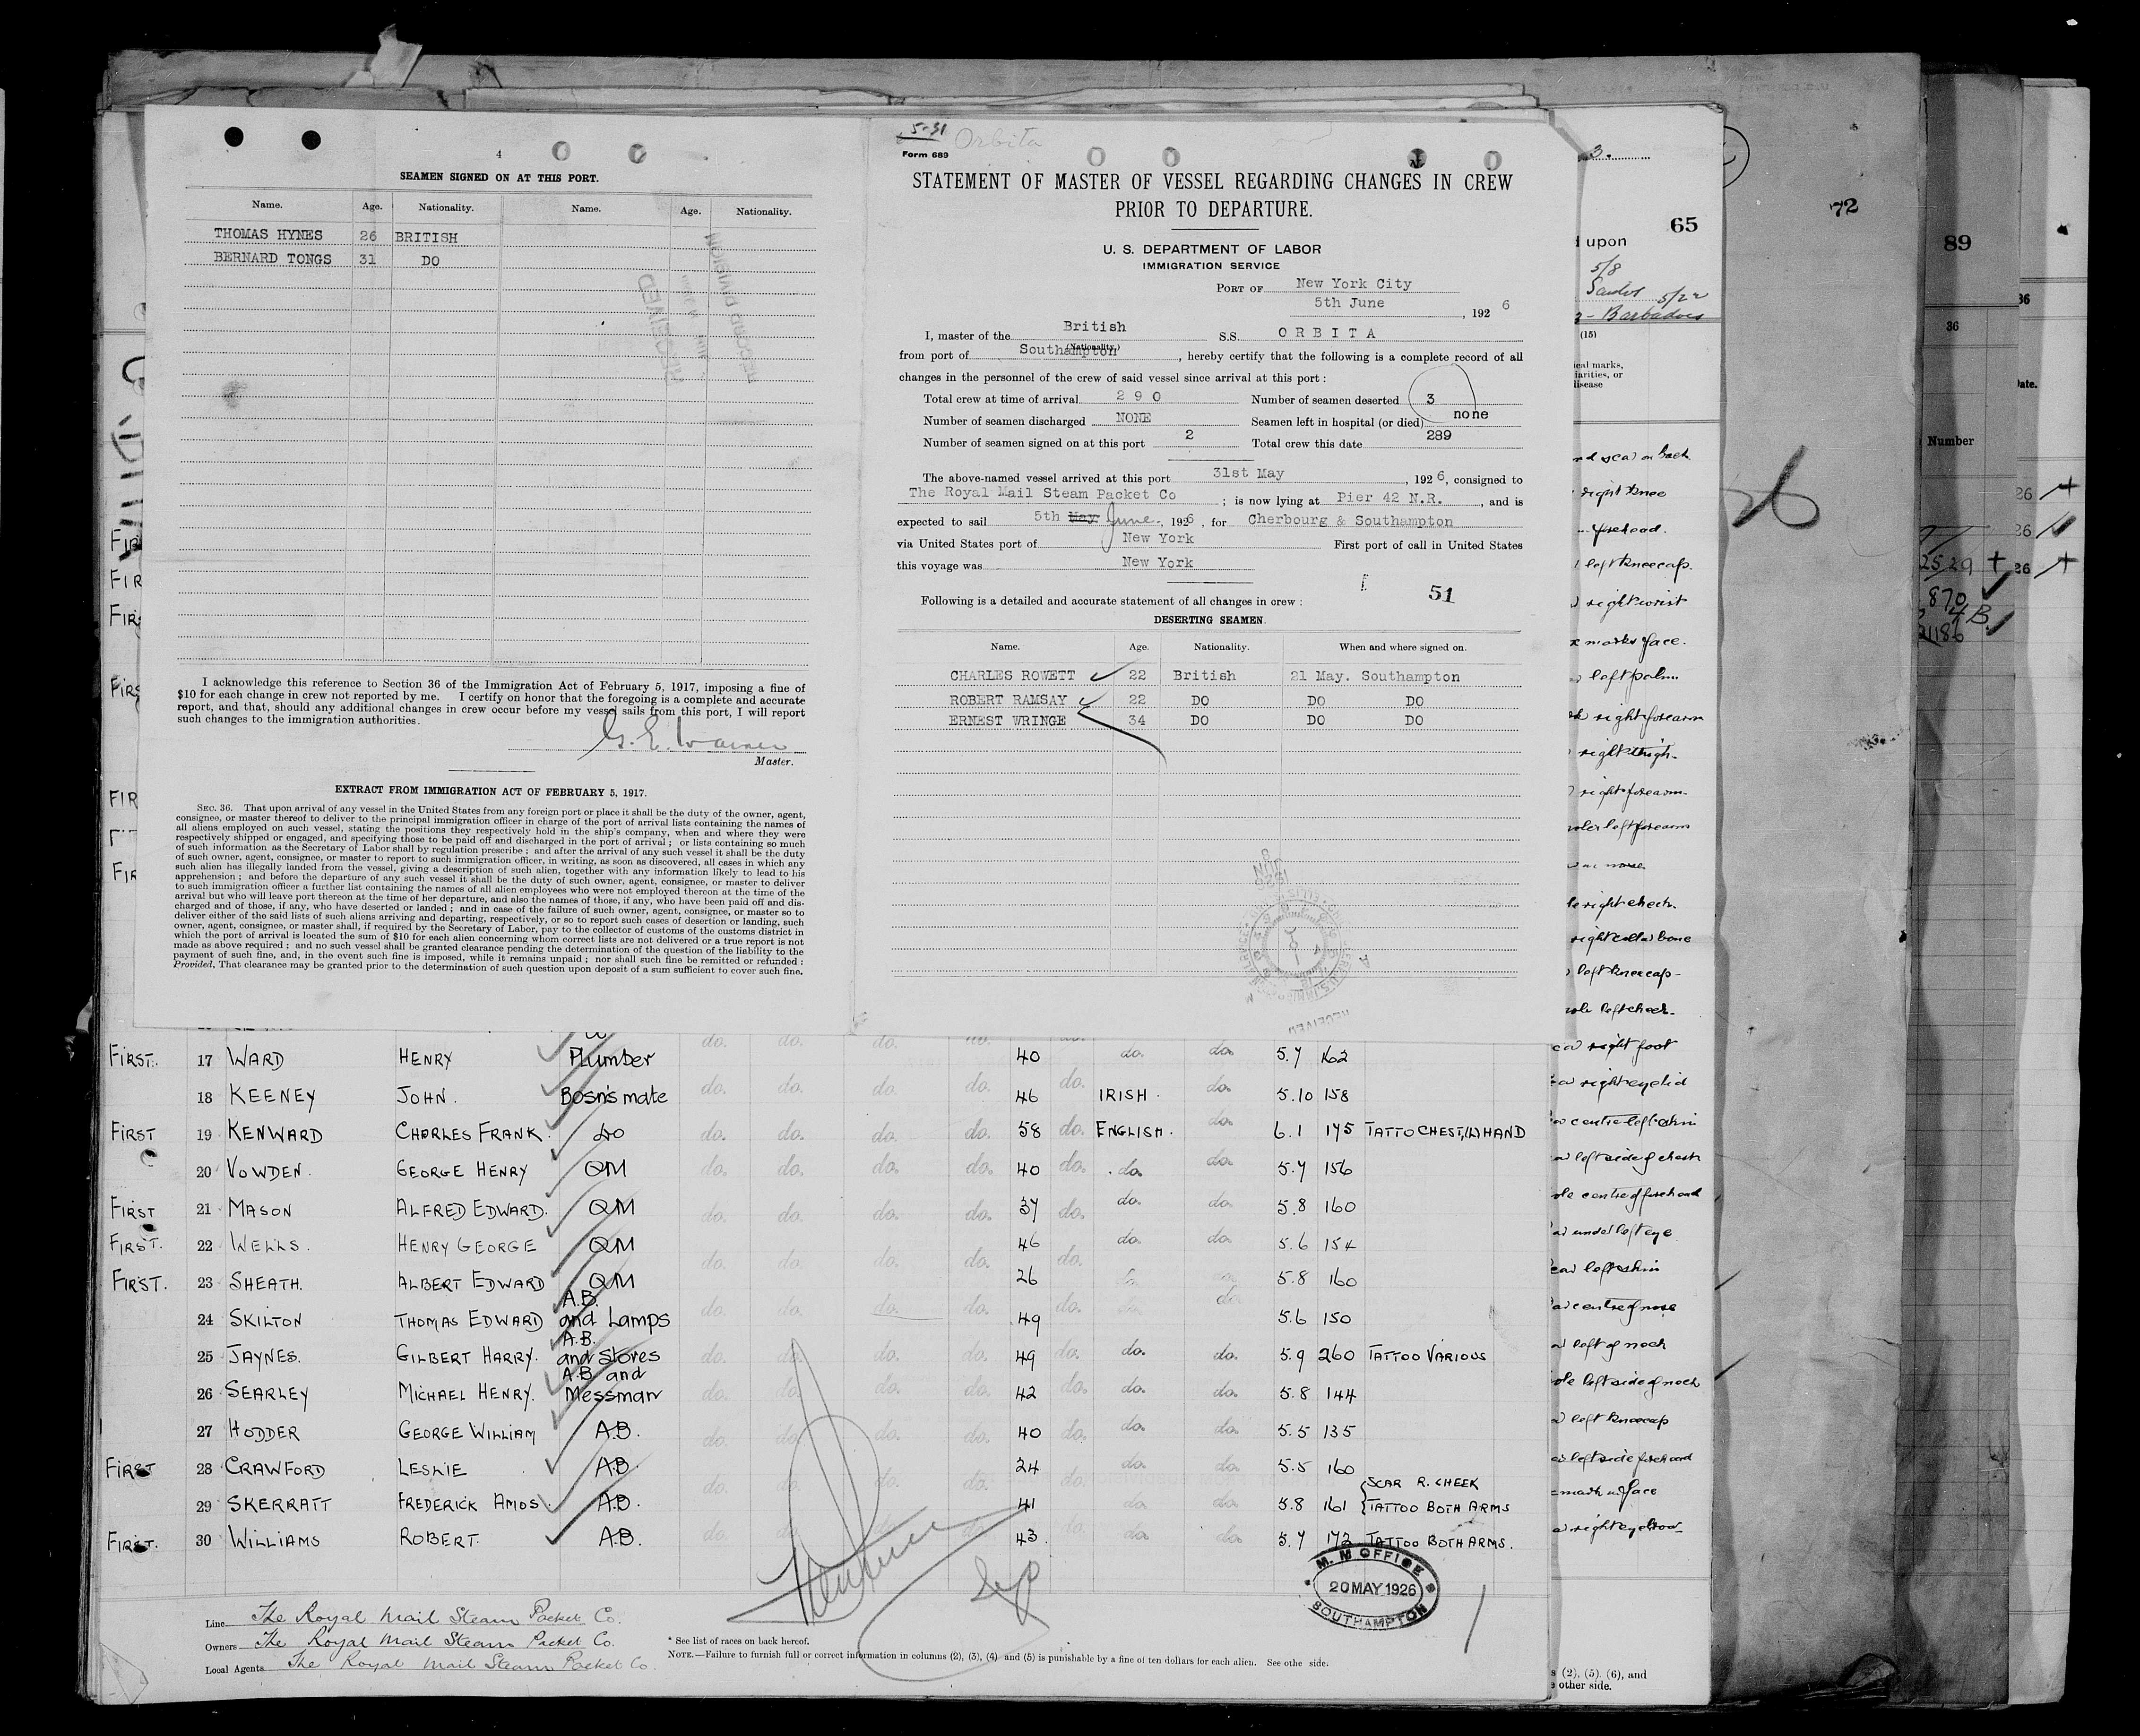 4
SEAMEN SIGNED ON AT THIS PORT.
Name. Age. Nationality. Name. Age. Nationality.
THOMAS HYNES 26 BRITISH
BERNARD TONGS 31 DO
I acknowledge this reference to Section 36 of the Immigration Act of February 5, 1917, imposing a fine of
$10 for each change in crew not reported by me. I certify on honor that the foregoing is a complete and accurate
report, and that, should any additional changes in crew occur before my vessel sails from this port, I will report
such changes to the immigration authorities.
G. E. Warner
Master.
EXTRACT FROM IMMIGRATION ACT OF FEBRUARY 5, 1917.
SEC. 36. That upon arrival of any vessel in the United States from any foreign port or place it shall be the duty of the owner, agent,
consignee, or master thereof to deliver to the principal immigration officer in charge of the port of arrival lists containing the names of
all aliens employed on such vessel, stating the positions they respectively hold in the ship's company, when and where they were
respectively shipped or engaged, and specifying those to be paid off and discharged in the port of arrival; or lists containing so much
of such information as the Secretary of Labor shall by regulation prescribe; and after the arrival of any such vessel it shall be the duty
of such owner, agent, consignee, or master to report to such immigration officer, in writing, as soon as discovered, all cases in which any
such alien has illegally landed from the vessel, giving a description of such alien, together with any information likely to lead to his
apprehension; and before the departure of any such vessel it shall be the duty of such owner, agent, consignee, or master to deliver
to such immigration officer a further list containing the names of all alien employees who were not employed thereon at the time of the
arrival but who will leave port thereon at the time of her departure, and also the names of those, if any, who have been paid off and dis-
charged and of those, if any, who have deserted or landed; and in case of the failure of such owner, agent, consignee, or master so to
deliver either of the said lists of such aliens arriving and departing, respectively, or so to report such cases of desertion or landing, such
owner, agent, consignee, or master shall, if required by the Secretary of Labor, pay to the collector of customs of the customs district in
which the port of arrival is located the sum of $10 for each alien concerning whom correct lists are not delivered or a true report is not
made as above required; and no such vessel shall be granted clearance pending the determination of the question of the liability to the
payment of such fine, and, in the event such fine is imposed, while it remains unpaid; nor shall such fine be remitted or refunded:
Provided, That clearance may be granted prior to the determination of such question upon deposit of a sum sufficient to cover such fine.
5-31 Orbita
Form 689
STATEMENT OF MASTER OF VESSEL REGARDING CHANGES IN CREW
PRIOR TO DEPARTURE.
U. S. DEPARTMENT OF LABOR
IMMIGRATION SERVICE
PORT OF New York City
5th June, 1926
I, master of the British S.S. ORBITA
(Nationality)
from port of Southampton, hereby certify that the following is a complete record of all
changes in the personnel of the crew of said vessel since arrival at this port:
Total crew at time of arrival 290 Number of seamen deserted 3
Number of seamen discharged NONE Seamen left in hospital (or died) none
Number of seamen signed on at this port 2 Total crew this date 289
The above-named vessel arrived at this port 31st May, 1926, consigned to
The Royal Mail Steam Packet Co; is now lying at Pier 42 N.R., and is
expected to sail 5th May June, 1926, for Cherbourg & Southampton
via United States port of New York First port of call in United States
this voyage was New York
51
Following is a detailed and accurate statement of all changes in crew:
DESERTING SEAMEN.
Name. Age. Nationality. When and where signed on.
CHARLES ROWETT 22 British 21 May. Southampton
ROBERT RAMSAY 22 DO DO DO
ERNEST WRINGE 34 DO DO DO
FIRST. 17 WARD HENRY Plumber do. do. do. do. 40 do. do. 5.7 162
18 KEENEY JOHN. Bosn's mate do. do. do. do. 46 do. IRISH. do. 5.10 158
FIRST 19 KENWARD CHARLES FRANK. do do. do. do. do. 58 do. ENGLISH. do. 6.1 175 TATTO CHEST,(L)HAND
20 VOWDEN. GEORGE HENRY QM do. do. do. do. 40 do. do. do. 5.7 156
FIRST 21 MASON ALFRED EDWARD. QM do. do. do. do. 37 do. do. do. 5.8 160
FIRST. 22 WELLS. HENRY GEORGE QM do. do. do. do. 46 do. do. do. 5.6 154
FIRST. 23 SHEATH. ALBERT EDWARD QM 26 5.8 160
24 SKILTON THOMAS EDWARD A.B. and Lamps do. do. do. do. 49 do. do. 5.6 150
25 JAYNES. GILBERT HARRY. A.B. and Stores do. do. do. do. 49 do. do. do. 5.9 260 TATTOO VARIOUS
26 SEARLEY MICHAEL HENRY. A.B. and Messman do. do. do. do. 42 do. do. do. 5.8 144
27 HODDER GEORGE WILLIAM A.B. do. do. do. do. 40 do. do. do. 5.5 135
FIRST 28 CRAWFORD LESLIE A.B. do. do. 24 do. do. 5.5 160
29 SKERRATT FREDERICK AMOS. A.B. do. do. do. do. 41 do. do. do. 5.8 161 SCAR R. CHEEK TATTOO BOTH ARMS
FIRST. 30 WILLIAMS ROBERT. A.B. do. do. do. do. 43. do. do. do. 5.7 172 TATTOO BOTH ARMS.
M. M OFFICE
20 MAY 1926
SOUTHAMPTON
Line The Royal Mail Steam Packet Co.
Owners The Royal Mail Steam Packet Co.
Local Agents The Royal Mail Steam Packet Co.
* See list of races on back hereof.
NOTE.—Failure to furnish full or correct information in columns (2), (3), (4) and (5) is punishable by a fine of ten dollars for each alien. See othe side.
3.
65
upon
5/8
5/22
Barbados
(15)
marks,
disease
right knee
left kneecap.
right wrist
marks face.
left palm
right forearm
right thigh.
right forearm.
left forearm
nose
right cheek.
right collar bone
left kneecap
left cheek.
right foot
right eyelid
centre left shin
left side of chest
centre of forehead
under left eye
left shin
centre of nose
left of neck
left side of neck
left kneecap
left side forehead
face
right eyebrow
(2), (5). (6), and
other side.
72
26
89
36
Number
2529
870
4B
1186
36
26
26
26